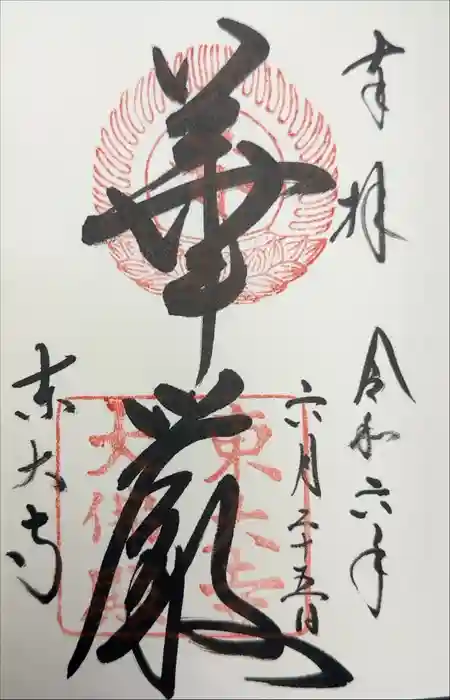 奉拝
令和六年
六月二十五日
華厳
東大寺
東大寺
大佛殿